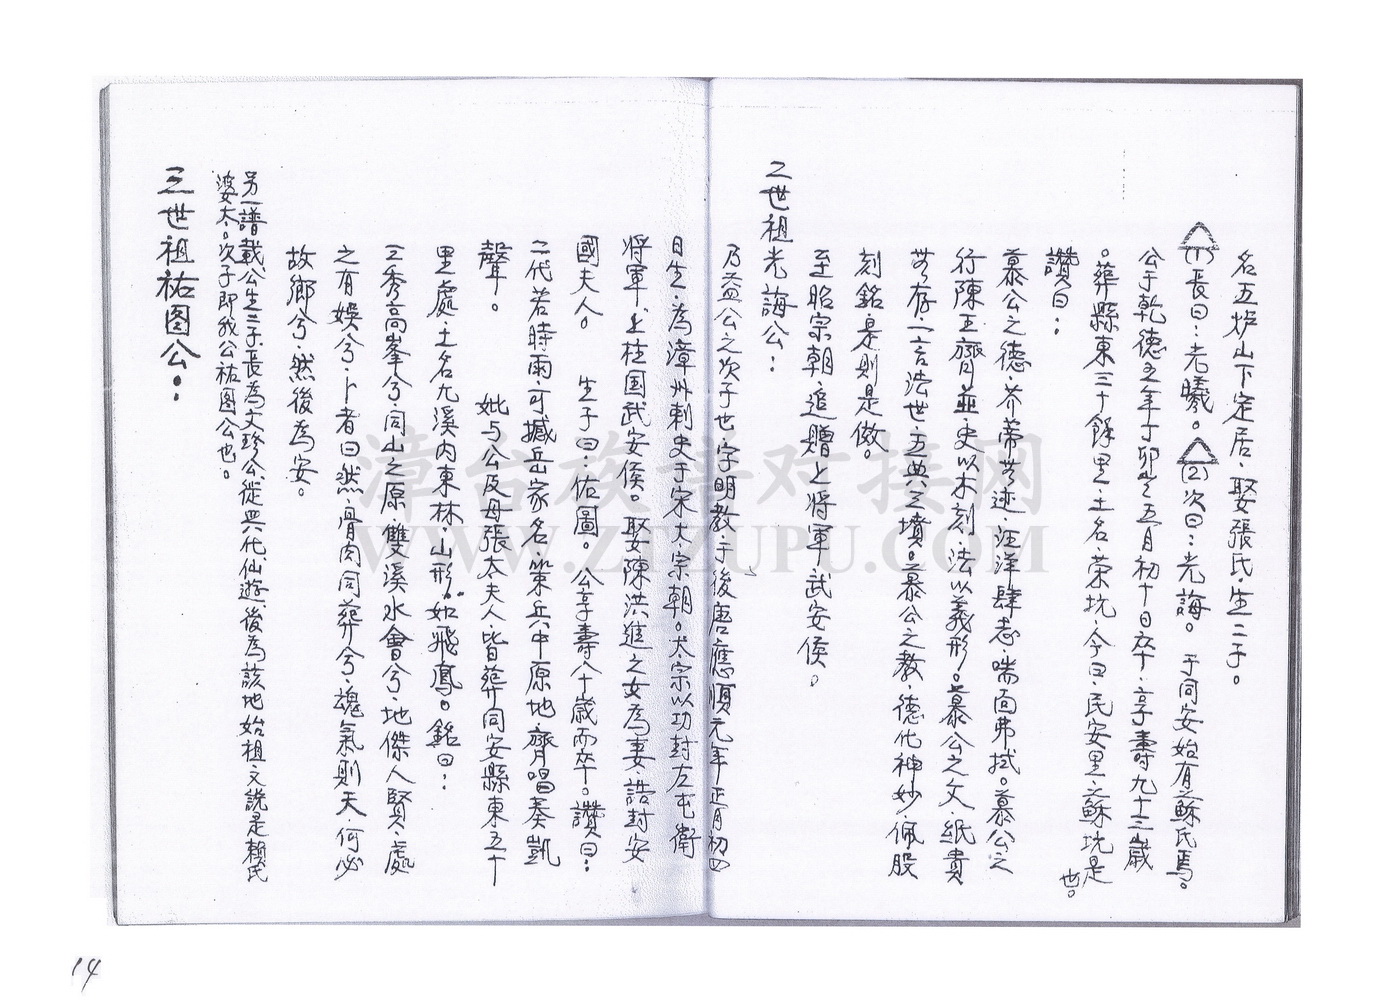 名五炉山下定居、娶張氏、生二子。
(1)長曰:老曦。(2)次曰:光誨。于同安始有蘇氏焉。
公于乾德五年丁卯之五月初十日卒、享壽九十三歲
。葬縣東三十餘里、土名、榮坑、今曰、民安里、蘇坑是
也。
讚曰:
慕公之德、芥蒂無迹、汪洋肆志、喘面弗拭。慕公之
行陳五齊並、史以木刻、法以義形。慕公之文、紙貴
無存、一言法世、五典三墳。慕公之教、德化神妙、佩股
刻銘、是則是傚。
至昭宗朝、追贈上將軍武安侯。
二世祖光誨公:
乃益公之次子也、字明教、于後唐應順元年正月初四
日生、為漳州刺史于宋太宗朝。太宗以功封左屯衛
將軍、上柱国武安侯。娶陳洪進之女為妻、誥封安
國夫人。 生子曰、佑圖。公享壽八十歲而卒。讚曰:
二代若時雨、可撼岳家名、策兵中原地、齊唱奏凱
聲。 妣与公及母張太夫人、皆葬同安縣東五十
里處、土名九溪内東林、山形、如飛鳳。銘曰:
三秀高峯兮、同山之原、雙溪水會兮、地傑人賢、處
之有娛兮、卜者曰然、骨肉同葬兮、魂氣則天、何必
故鄉兮、然後為安。
另一譜載公生三子長為文珍公、徙興化仙遊、後為該地始祖、文說是賴氏
婆大。次子即我公祐图公也。
三世祖祐图公:
漳台族谱对接网
WWW.ZTZUPU.COM
14